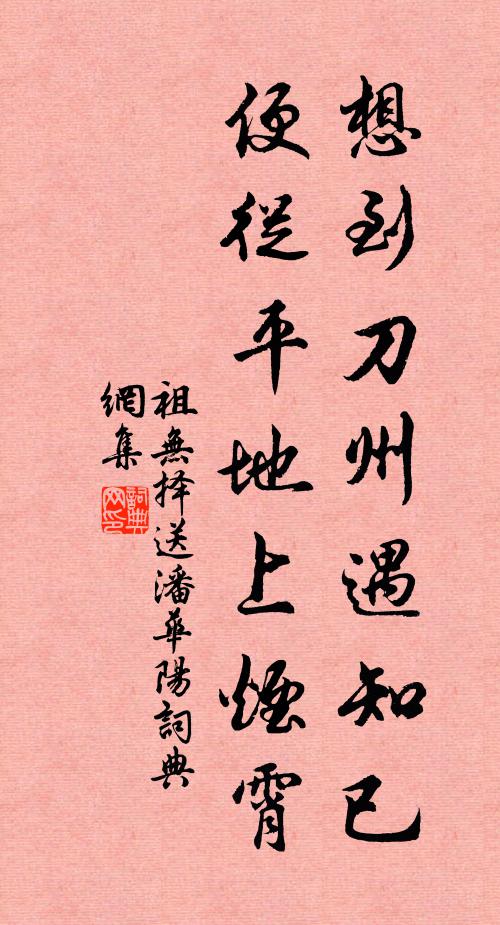 想到刀州遇知已
便從平地上煙霄
祖無择送潘華陽詞典
網集
詞典网印